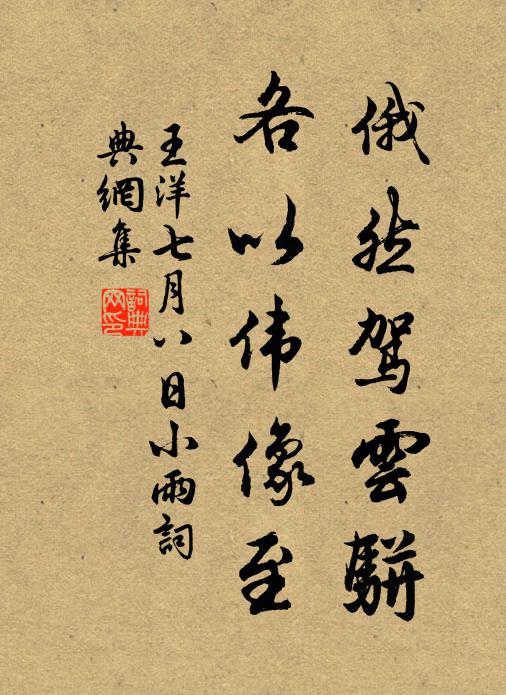 俄然驾雲駢
各以伟像至
王洋七月八日小雨詞
典網集
詞典网印